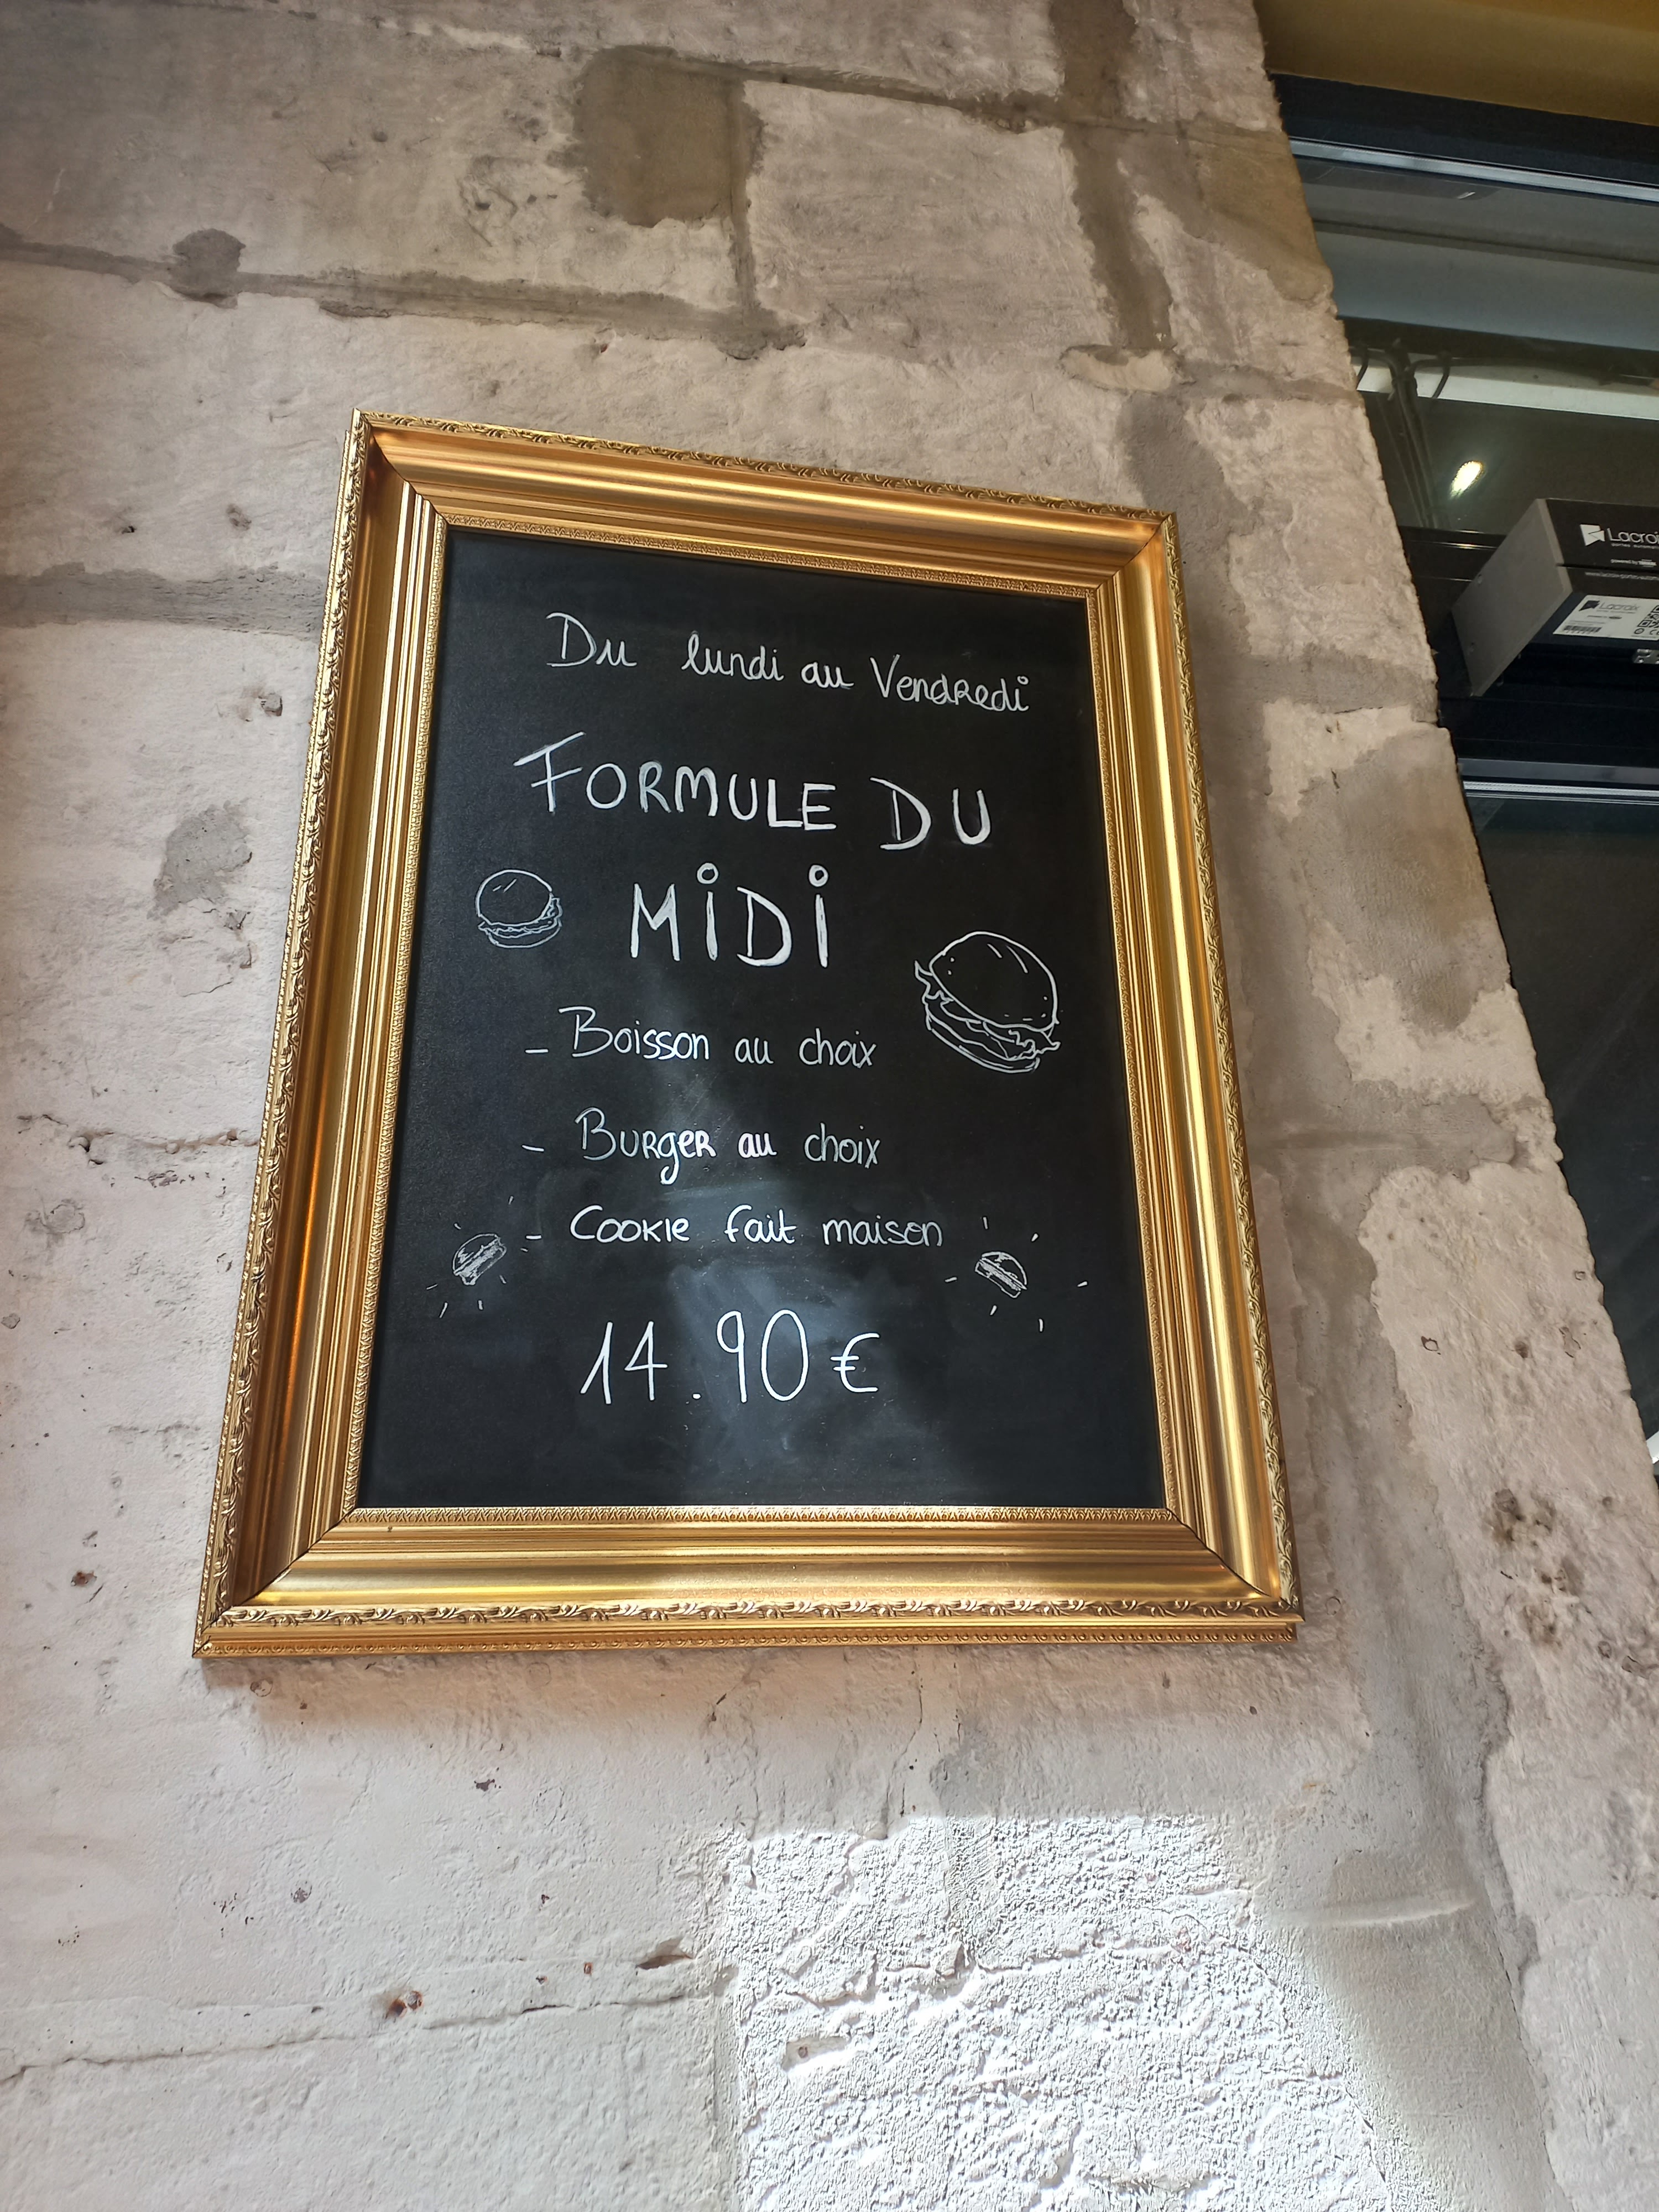 Du lundi au Vendredi
FORMULE DU
MiDi
- Boisson au choix
- Burger au choix
- Cookie fait maison
14.90 €
Lacroix